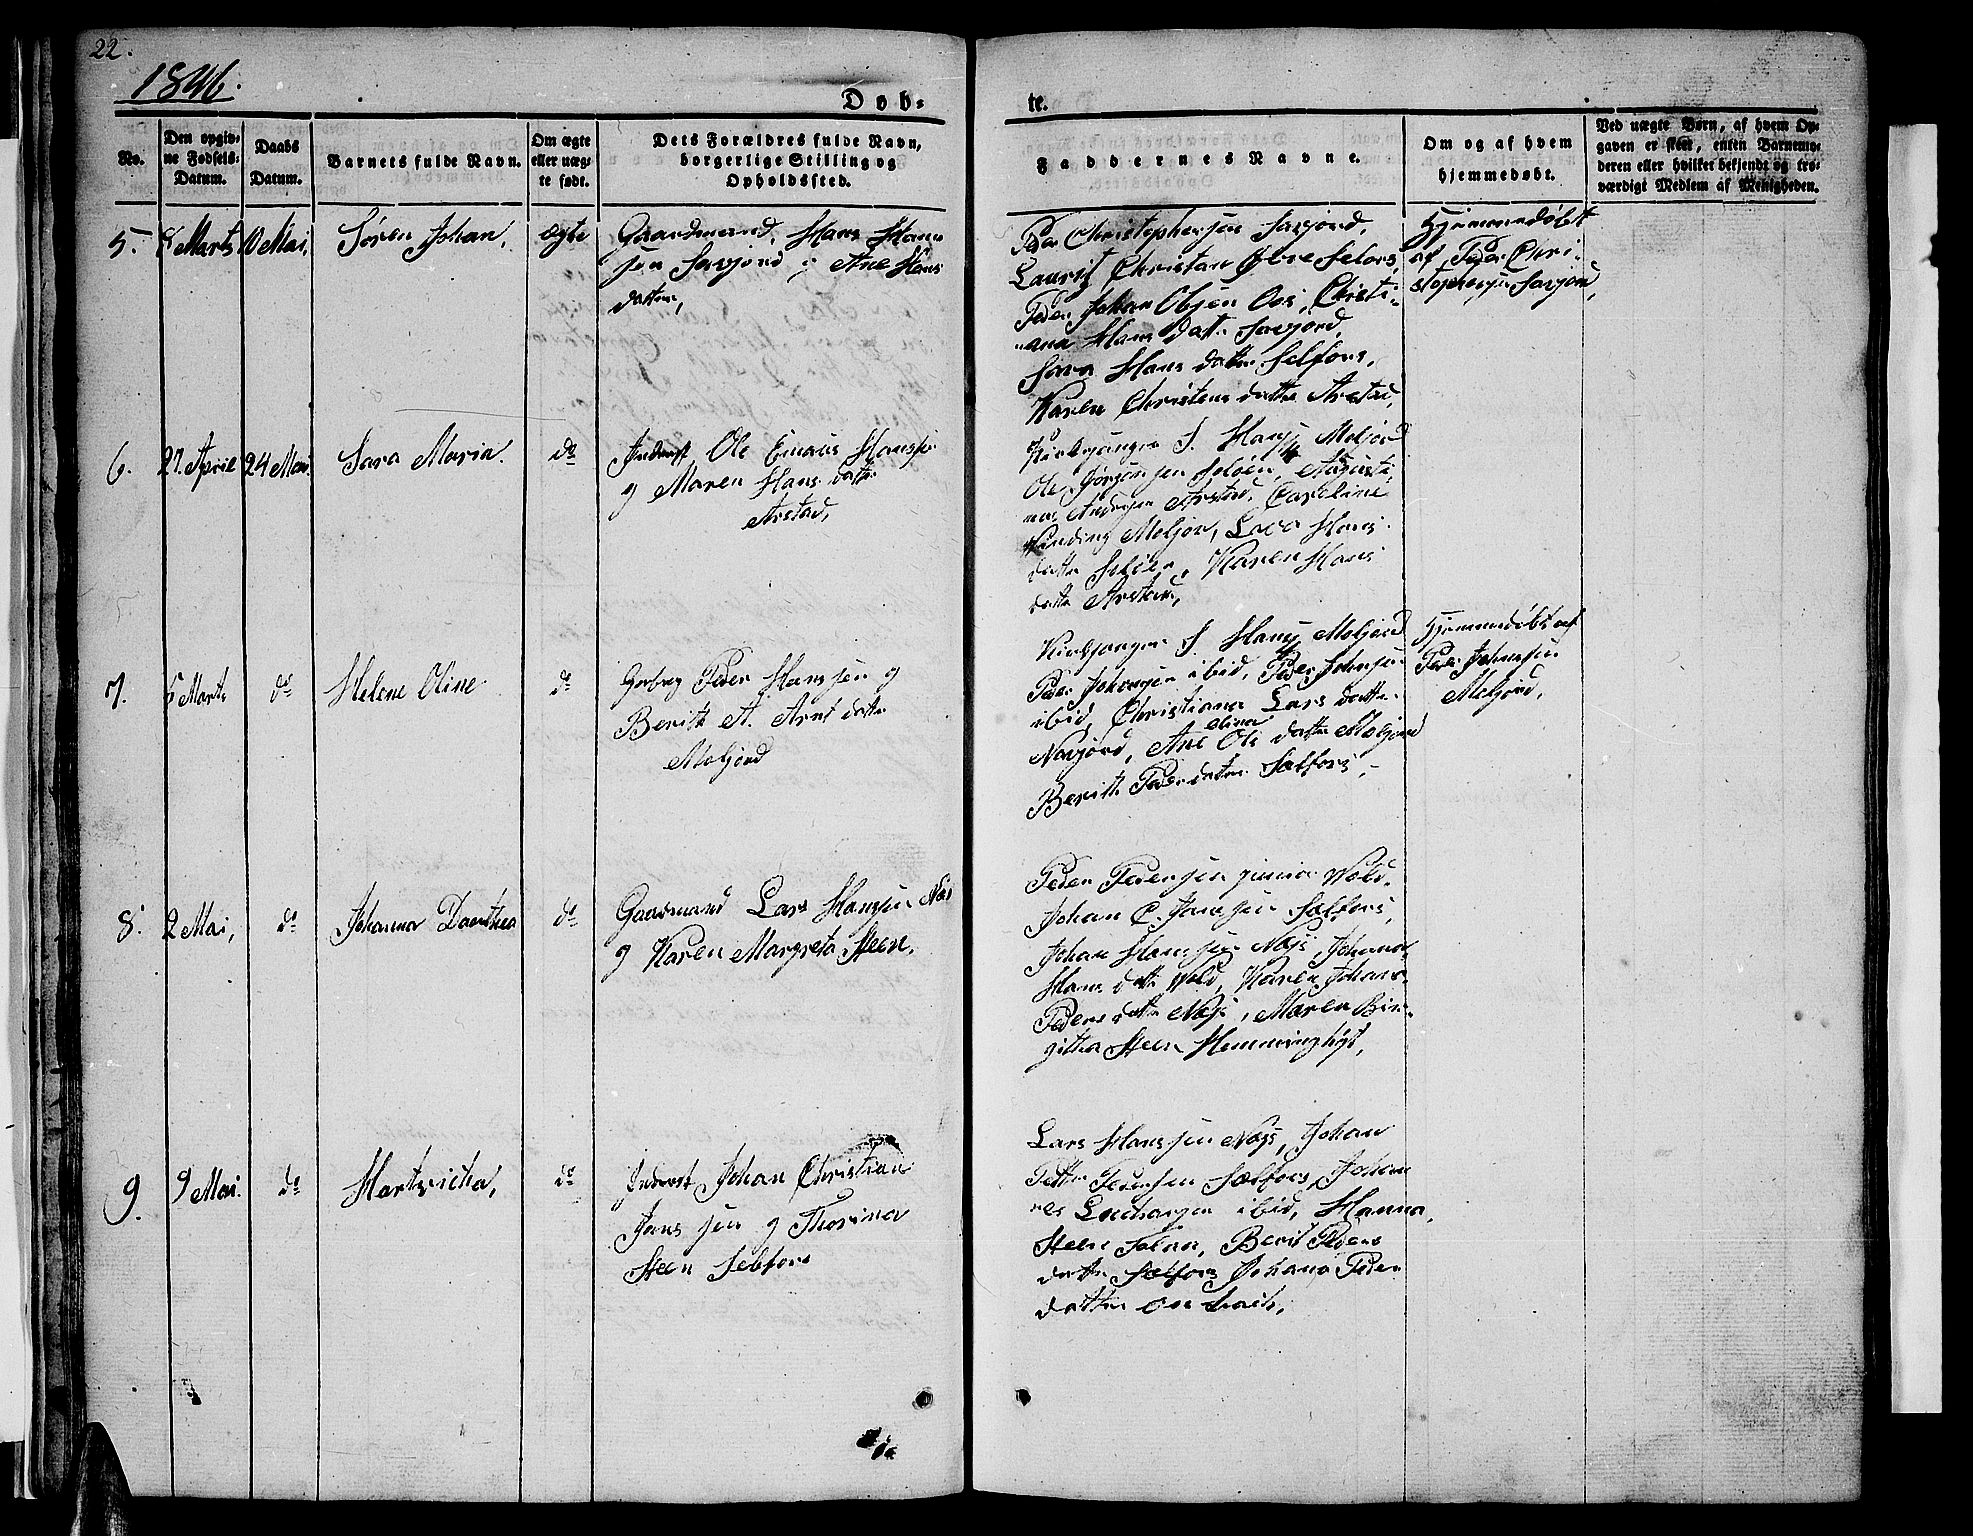 22.
1846.
Døb-
te.
No.
Den opgiv-
ne Fødsels-
Datum.
Daabs
Datum.
Barnets fulde Navn.
Om ægte
eller uæg-
te født.
Dets Forældres fulde Navn,
borgerlige Stilling og
Opholdssted.
Faddernes Navne.
Om og af hvem
hjemmedøbt.
Ved uægte Børn, af hvem Op-
gaven er skeet, enten Barnemo-
deren eller hvilket bekjendt og tro-
værdigt Medlem af Menigheden.
5.
8 Marts
10 Mai,
Søren Johan,
ægte
Gaardmand, Hans Han-
sen Saxjord og Ane Hans
datter,
Peder Christophersen Saxjord,
Laurits Christian Øvre Selfors,
Peder Johan Olsen Oos, Christi-
ana Hans datt. Saxjord,
Sara Hans datter Selfors,
Karen Christens datter Arstad,
Hjemmedøbt
af Peder Chri-
stophersen Saxjord,
6.
27. April
24 Mai.
Sara Maria.
do
Inderst Ole Emaus Hanssen
og Maren Hans datter
Arstad,
Kirkesanger J. Hansen Moljord
Ole Jørgensen Seløen, Augusti-
nus Andersen Arstad, Caroline
Moljord, Hans
datter Seløen, Karen Hans
datter Arstad,
7.
5 Marts
do
Helene Oline
do
Peder Hanssen og
Berith A. Arnt datter
Moljord
Kirkesanger J. Hansen Moljord
Peder Johnsen ibid, Peder Johnsen
ibid, Christiana Lars datter
Navjord, Ane Ols datter Moljord
elina
Berith Peders datter Selfors,
Hjemmedøbt af
Peder Johnsen
Moljord,
8.
2 Mai,
do
Johanna Dorothea
do
Gaardmand Lars Hansen Næs
og Karen Margreta Steen.
Peder Pedersen junior Vold,
Johan C. Jansen Selfors,
Johan Hansen Næss, Johanna
Hans datt Vold, Karen Johana
Peders datter Næss, Maren Bir-
githa Steen Hemminghyt,
9.
9 Mai.
do
Hartvicha,
do
Inderst Johan Christian
Jans sen og Thorina
Steen Selfors
Lars Hanssen Næss, Johan
Petter Pedersen Selfors, Johan-
nes ibid, Hanna
Steen Berit Peders
datter Selfors Johana Peder
datter